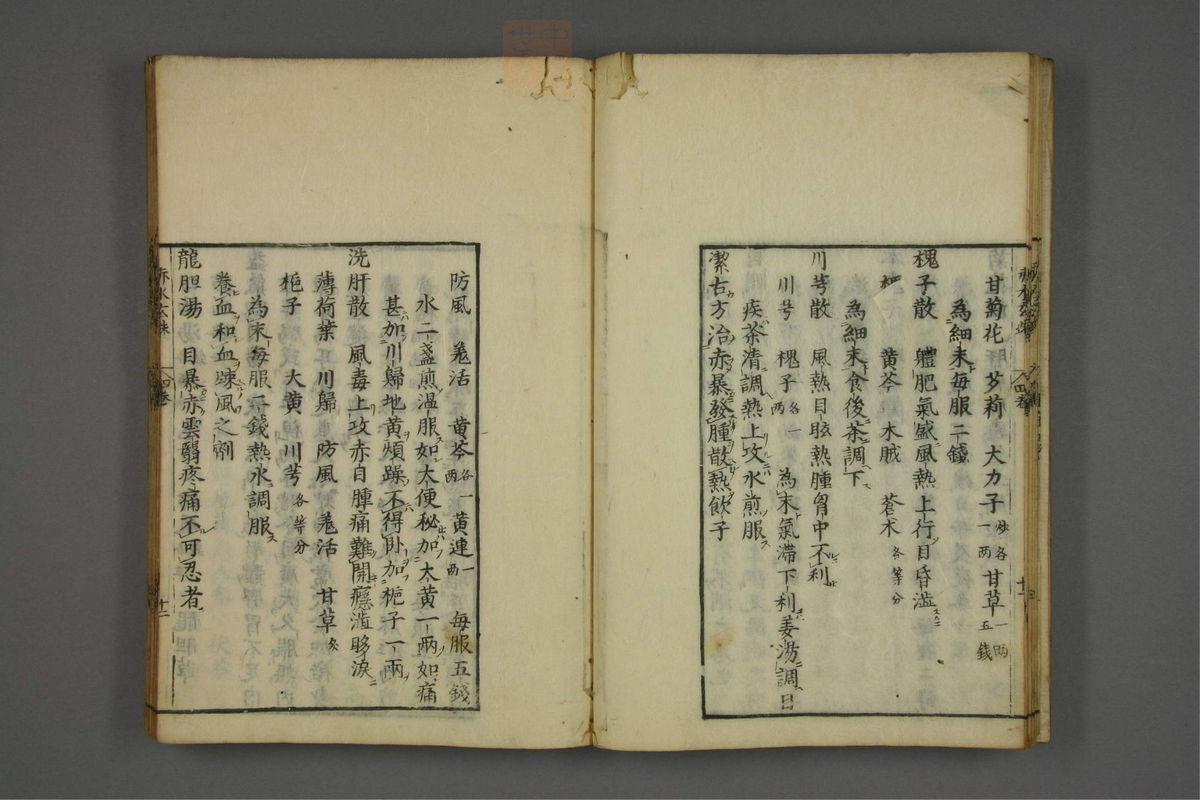 甘菊花 芕莉 大力子 炒各一两 甘草 一两五錢
為細末每服二錢
槐子散 軆肥氣盛風熱上行目昏澁
槐子 黄芩 木賊 蒼术 各等分
為細末食後茶調下
川芎散 風熱目眩熱腫胷中不利
川芎 槐子 各一两 為末氣滯下利姜湯調目
疾茶清調熱上攻水煎服
潔古方治赤暴發腫散熱飲子
防風 羗活 黄芩 各一两 黄連 一两 每服五錢
水二盞煎温服如大便秘加大黄一兩如痛
甚加川歸地黄煩躁不得卧加梔子一兩
洗肝散 風毒上攻赤目腫痛難開癮澁眵淚
薄荷葉 川歸 防風 羗活 甘草 炙
梔子 大黄 川芎 各等分
為末每服二錢熱水調服
養血和血踈風之劑
龍胆湯 目暴赤雲翳疼痛不可忍者
赤水玄珠 四卷 十二